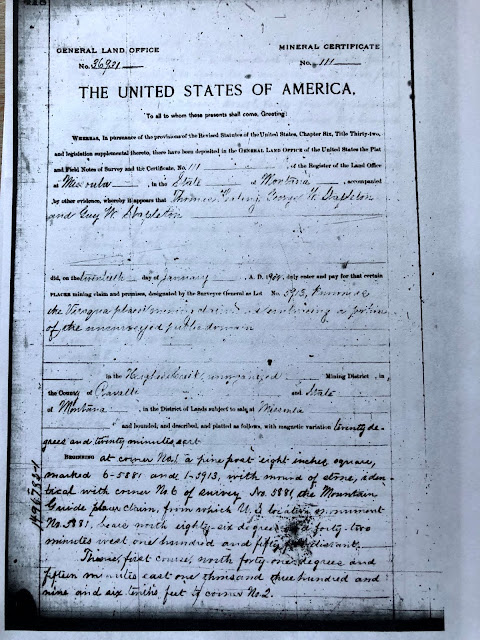 GENERAL LAND OFFICE
No. 36931
MINERAL CERTIFICATE
No. 111
THE UNITED STATES OF AMERICA,
To all to whom these presents shall come, Greeting:
WHEREAS, In pursuance of the provisions of the Revised Statutes of the United States, Chapter Six, Title Thirty-two,
and legislation supplemental thereto, there have been deposited in the GENERAL LAND OFFICE of the United States the Plat
and Field Notes of Survey and the Certificate, No. 111, of the Register of the Land Office
at Missoula, in the State of Montana, accompanied
by other evidence, whereby it appears that Thomas George W. Stapleton
and Guy W. Stapleton
did, on the twentieth day of January A. D. duly enter and pay for that certain
PLACER mining claim and premises, designated by the Surveyor General as Lot No. 5913,
the placer mining claim embracing a portion
of the unsurveyed public domain
in the unorganized Mining District, in
the County of Ravalli and State
of Montana, in the District of Lands subject to sale at Missoula
and bounded, and described, and platted as follows, with magnetic variation twenty de-
grees and twenty minutes east
BEGINNING at corner No. 1 a pine post eight inches square,
marked 6-5881 and 1-5913, with mound of stone, iden-
tical with corner No. 6 of survey No. 5881, the Mountain
Guide placer claim, from which U. S. location monument
No. 5881, bears north eighty-six degrees and forty-two
minutes west one hundred and fifty feet distant.
Thence, first course, north forty-one degrees and
fifteen minutes east one thousand three hundred and
nine and six tenths feet to corner No. 2.